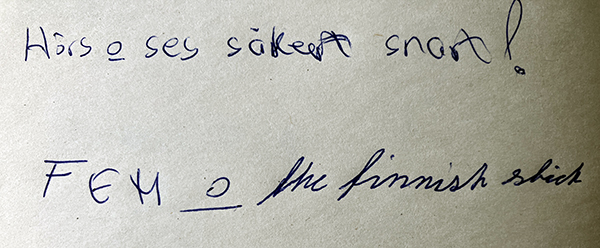 Hörs o ses säkert snart!
FEM o the finnish stick